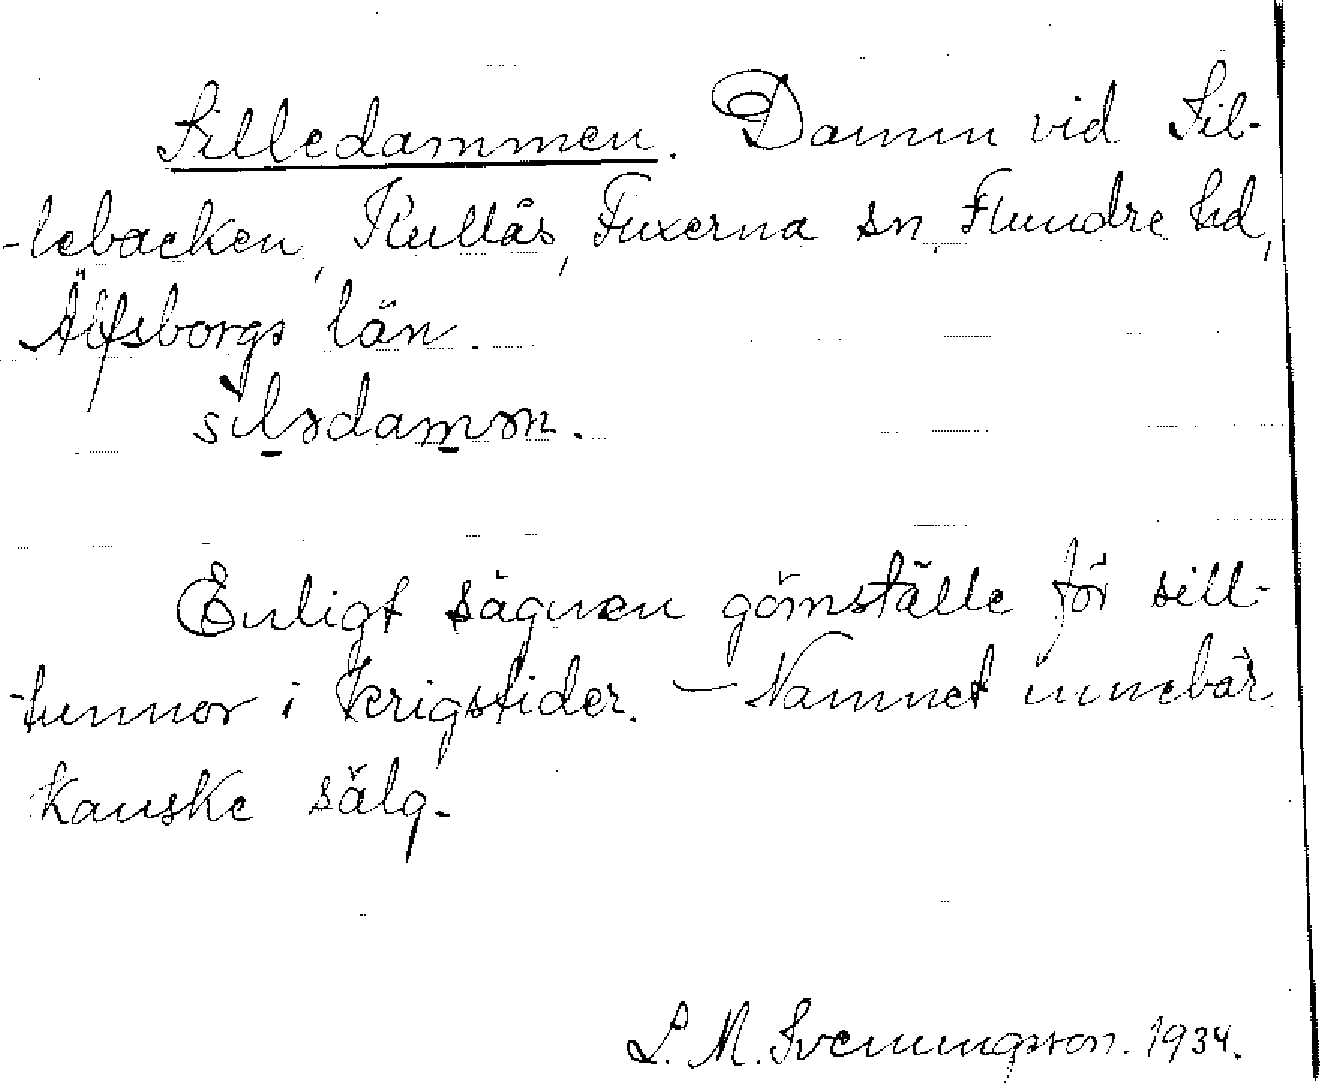 Silledammen. Damm vid Sil-
-lebacken, Kullås, Fuxerna sn, Flundre hd,
Älfsborgs län.
sìlədamən.
Enligt sägnen gömställe för sill-
-tunnor i krigstider. — Namnet innebär
kanske sälg.
L. M. Svenungsson. 1934.